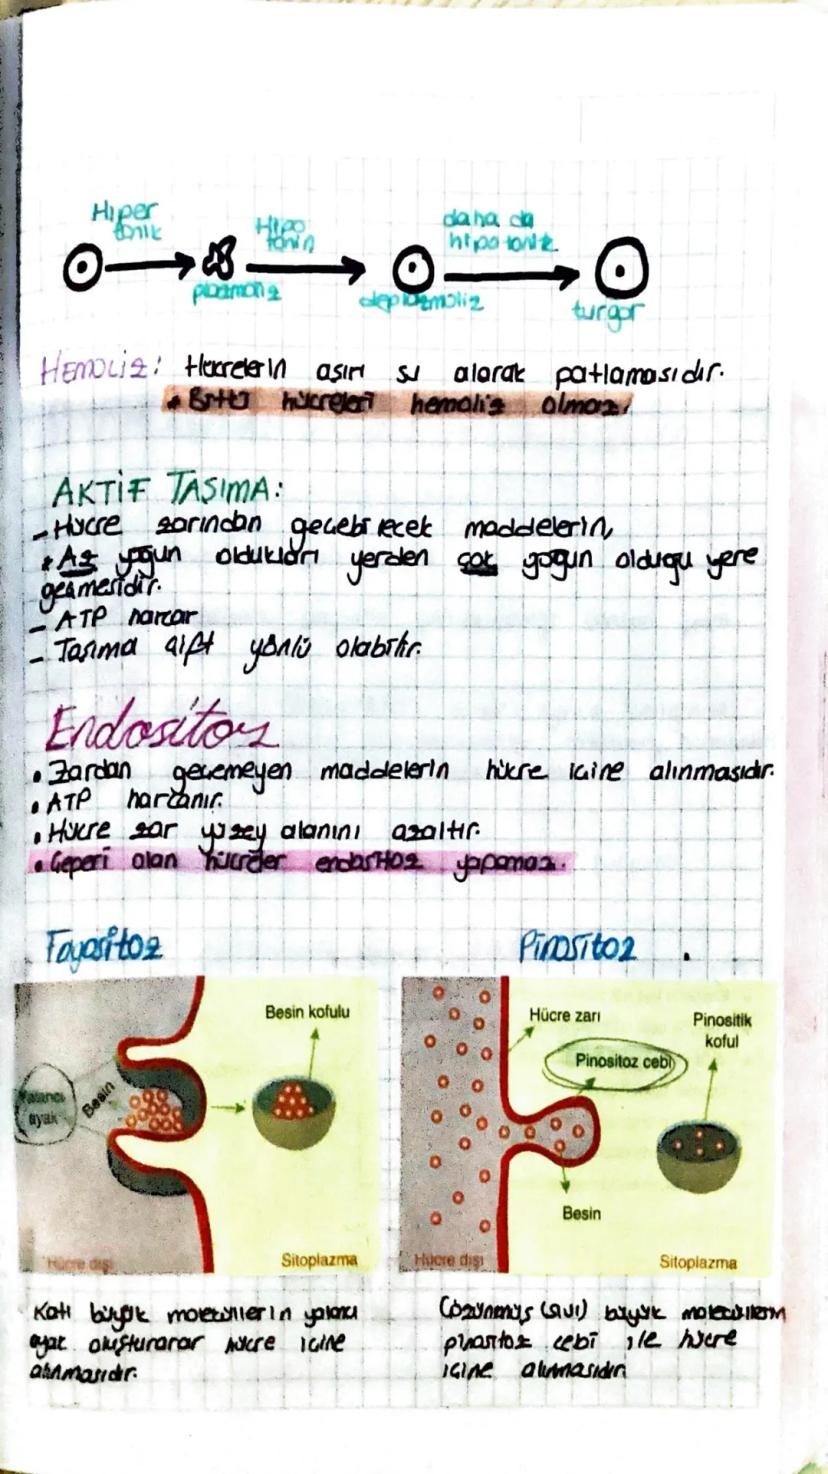 Hiper
tonik
Hipo
tonin
daha da
hipotonik
plazmoliz
deplazmoliz
turgor
HEMOLİZ: Hücrelerin aşırı su alarak patlamasıdır.
* Bitki hücreleri hemoliz olmaz!
AKTİF TAŞIMA:
- Hücre zarından geçebilecek maddelerin,
* Az yoğun oldukları yerden çok yoğun olduğu yere
geçmesidir.
- ATP harcar
- Taşıma çift yönlü olabilir.
Endositoz
• Zardan geçemeyen maddelerin hücre içine alınmasıdır.
• ATP harcanır.
• Hücre zar yüzey alanını azaltır.
• Çeperi olan hücreler endositoz yapamaz.
Fagositoz
Pinositoz
Besin kofulu
Yalancı
ayak
Besin
Hücre dışı
Sitoplazma
Hücre zarı
Pinositik
koful
Pinositoz cebi
Besin
Hücre dışı
Sitoplazma
Katı büyük moleküllerin yalancı
ayak oluşturarar hücre içine
alınmasıdır.
Çözünmüş (sıvı) büyük moleküllerin
pinositoz cebi ile hücre
içine alınmasıdır.